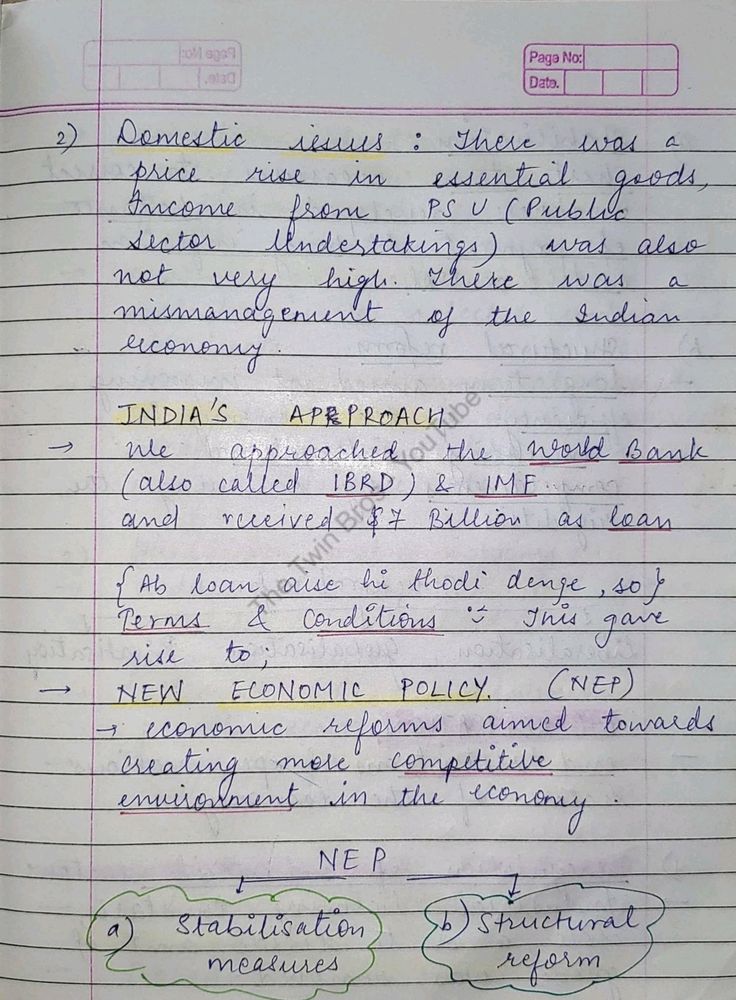 Page No:
Date.
2) Domestic issues : There was a
price rise in essential goods,
Income from PSU (Public
Sector Undertakings) was also
not very high. There was a
mismanagement of the Indian
economy.
INDIA'S APPROACH
→ We approached the World Bank
(also called IBRD) & IMF
and received $7 Billion as loan
{Ab loan aise hi thodi denge, so}
Terms & Conditions :- This gave
rise to;
→ NEW ECONOMIC POLICY. (NEP)
→ economic reforms aimed towards
creating more competitive
environment in the economy.
NEP
a) Stabilisation
measures
b) Structural
reform
The Twin Bros YouTube